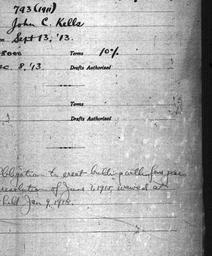 793 (1911)
John C. Kells
Sept 13, '13.
8000 Terms 10%
ec. 8, '13 Drafts Authorized
Terms
Drafts Authorized
Obligation to erect build
resolution of June 1, 1915, at
held Jan 9, 1916.